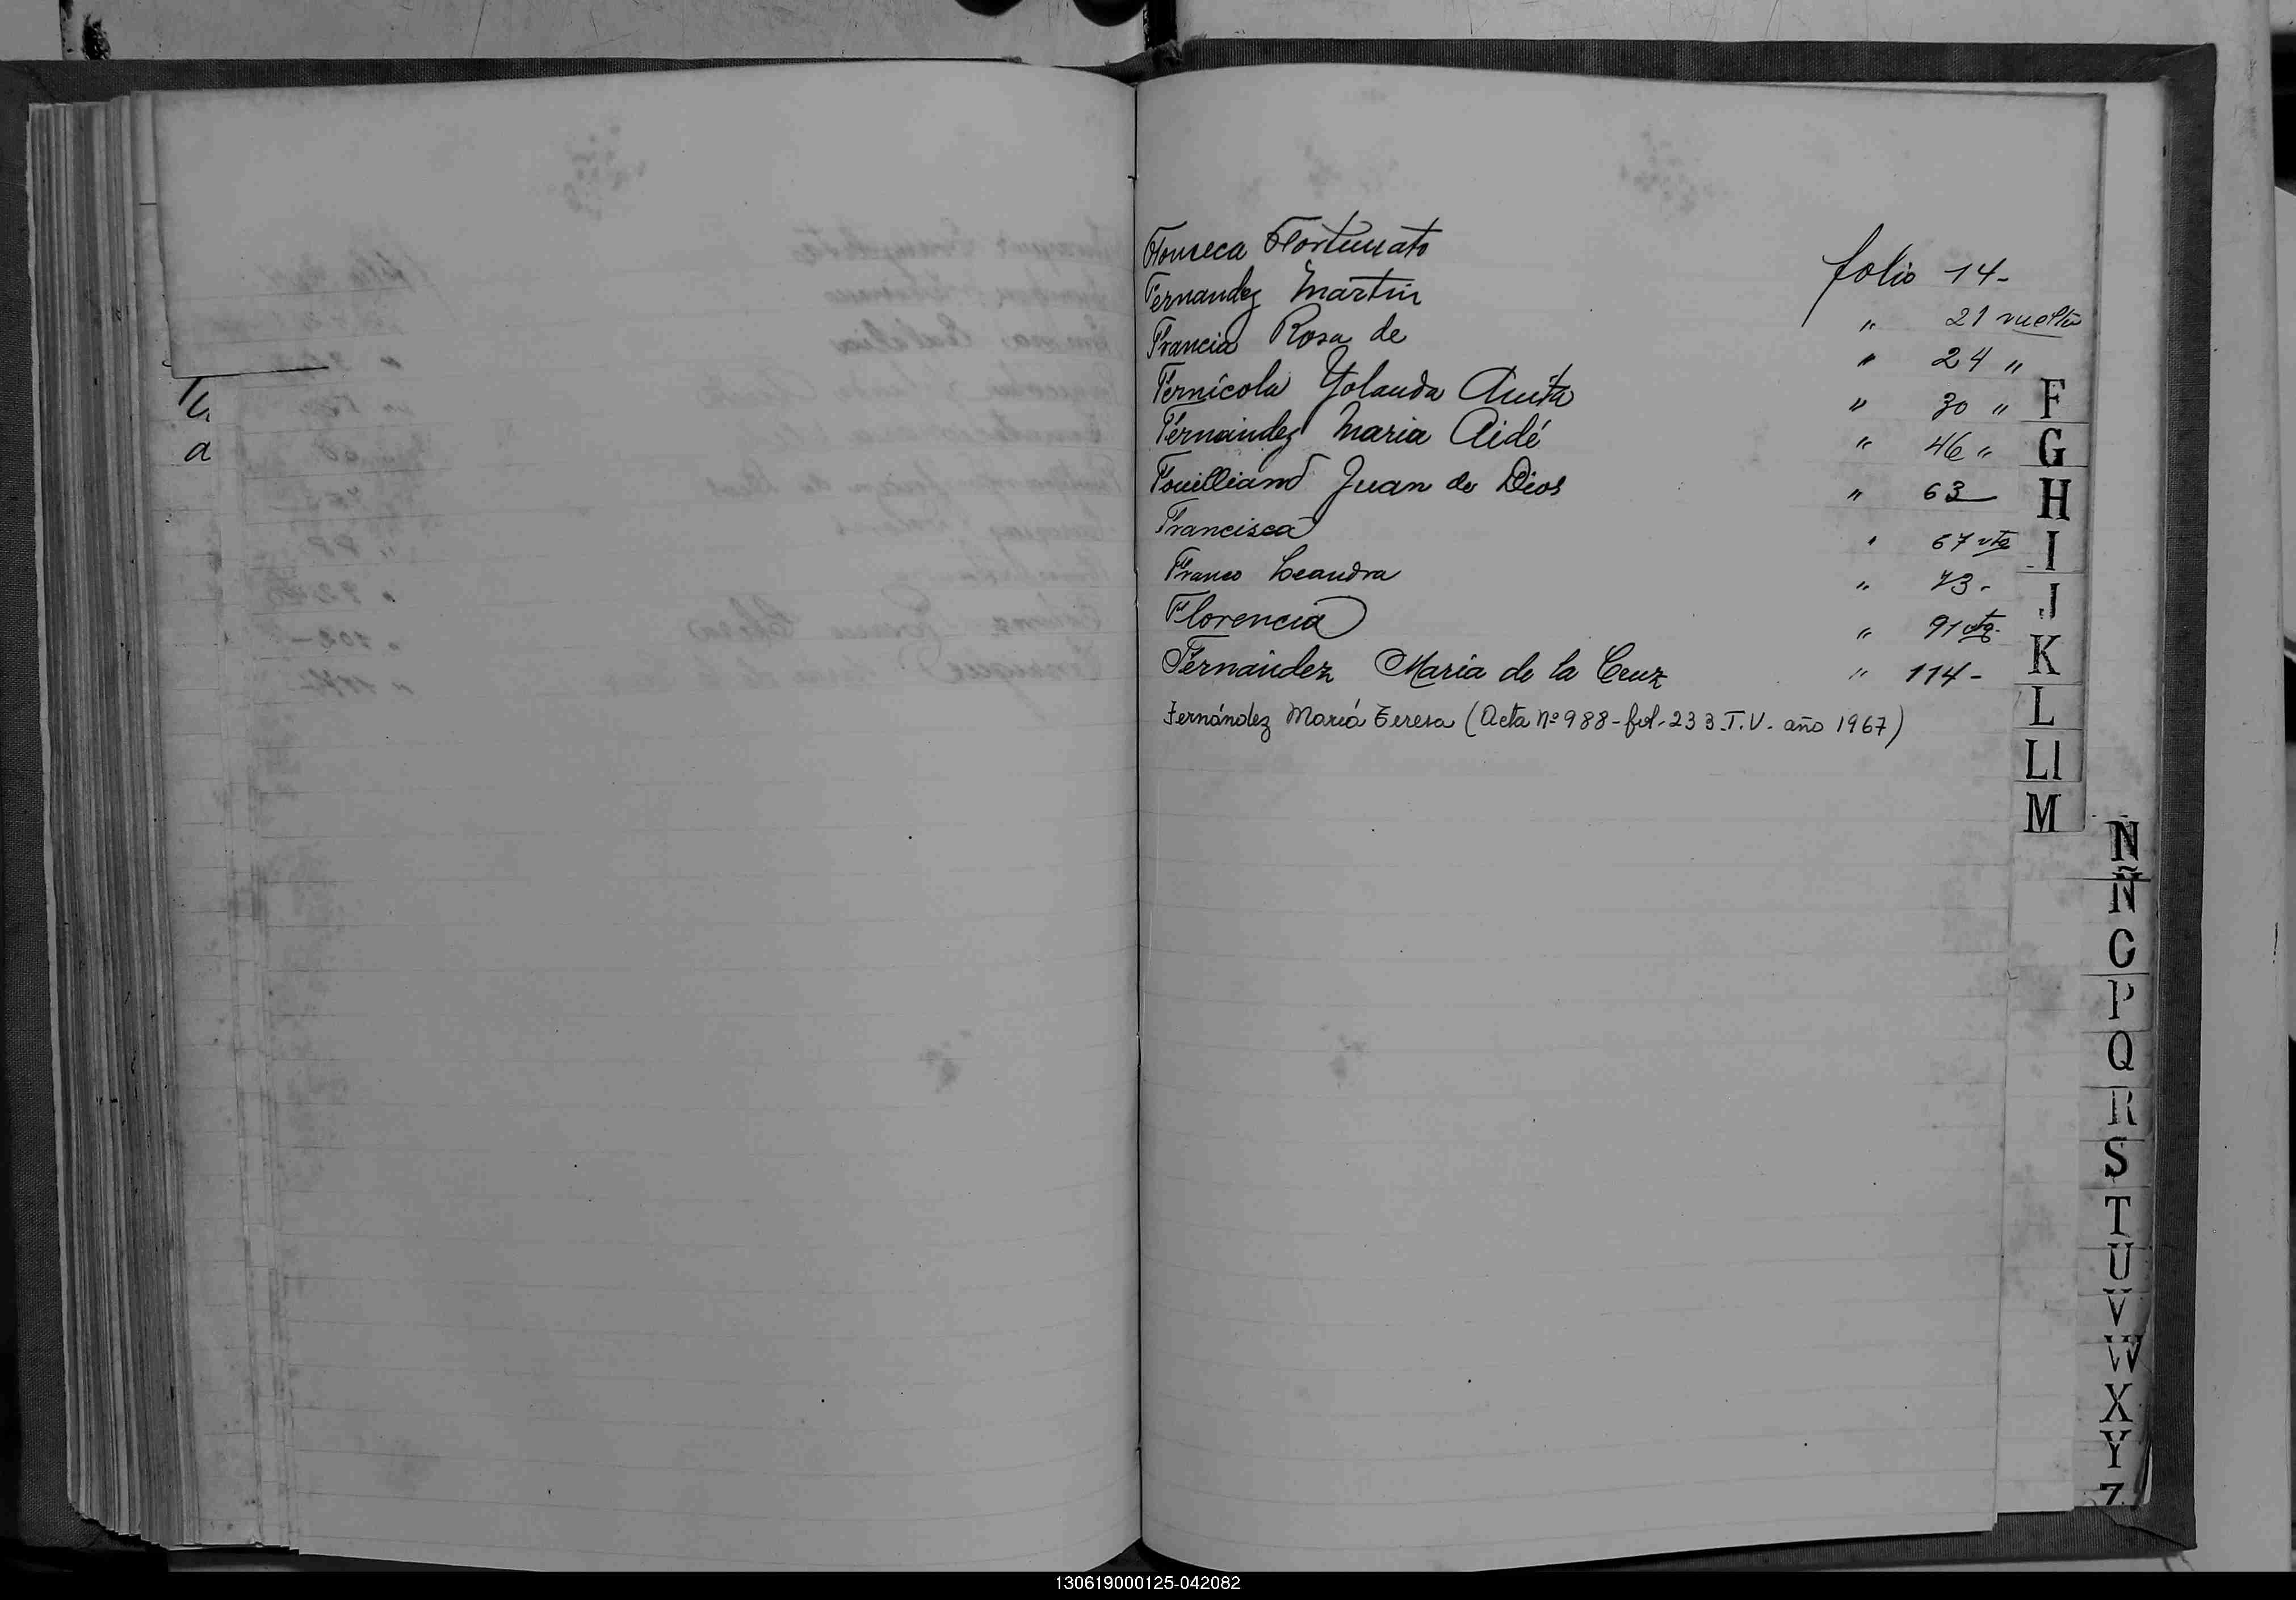 Fonseca Fortunato folio 14-
Fernandez Martin " 21 vuelta
Francia Rosa de " 24 "
Fernicola Yolanda Anita " 30 "
Fernández Maria Aidé " 46 "
Fouilliand Juan de Dios " 63
Francisca " 67 vta
Franco Leandra " 73-
Florencia " 91 vta.
Fernández Maria de la Cruz " 114-
Fernández María Teresa (Acta Nº 988-fol-233.T.V. año 1967)
a
F
G
H
I
J
K
L
Ll
M
N
Ñ
O
P
Q
R
S
T
U
V
W
X
Y
Z
130619000125-042082